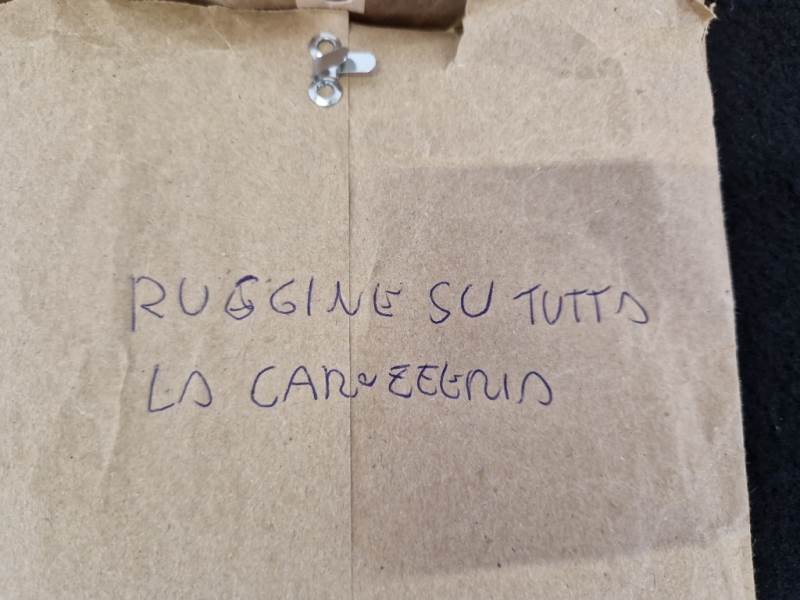 RUGGINE SU TUTTA
LA CARROZZERIA